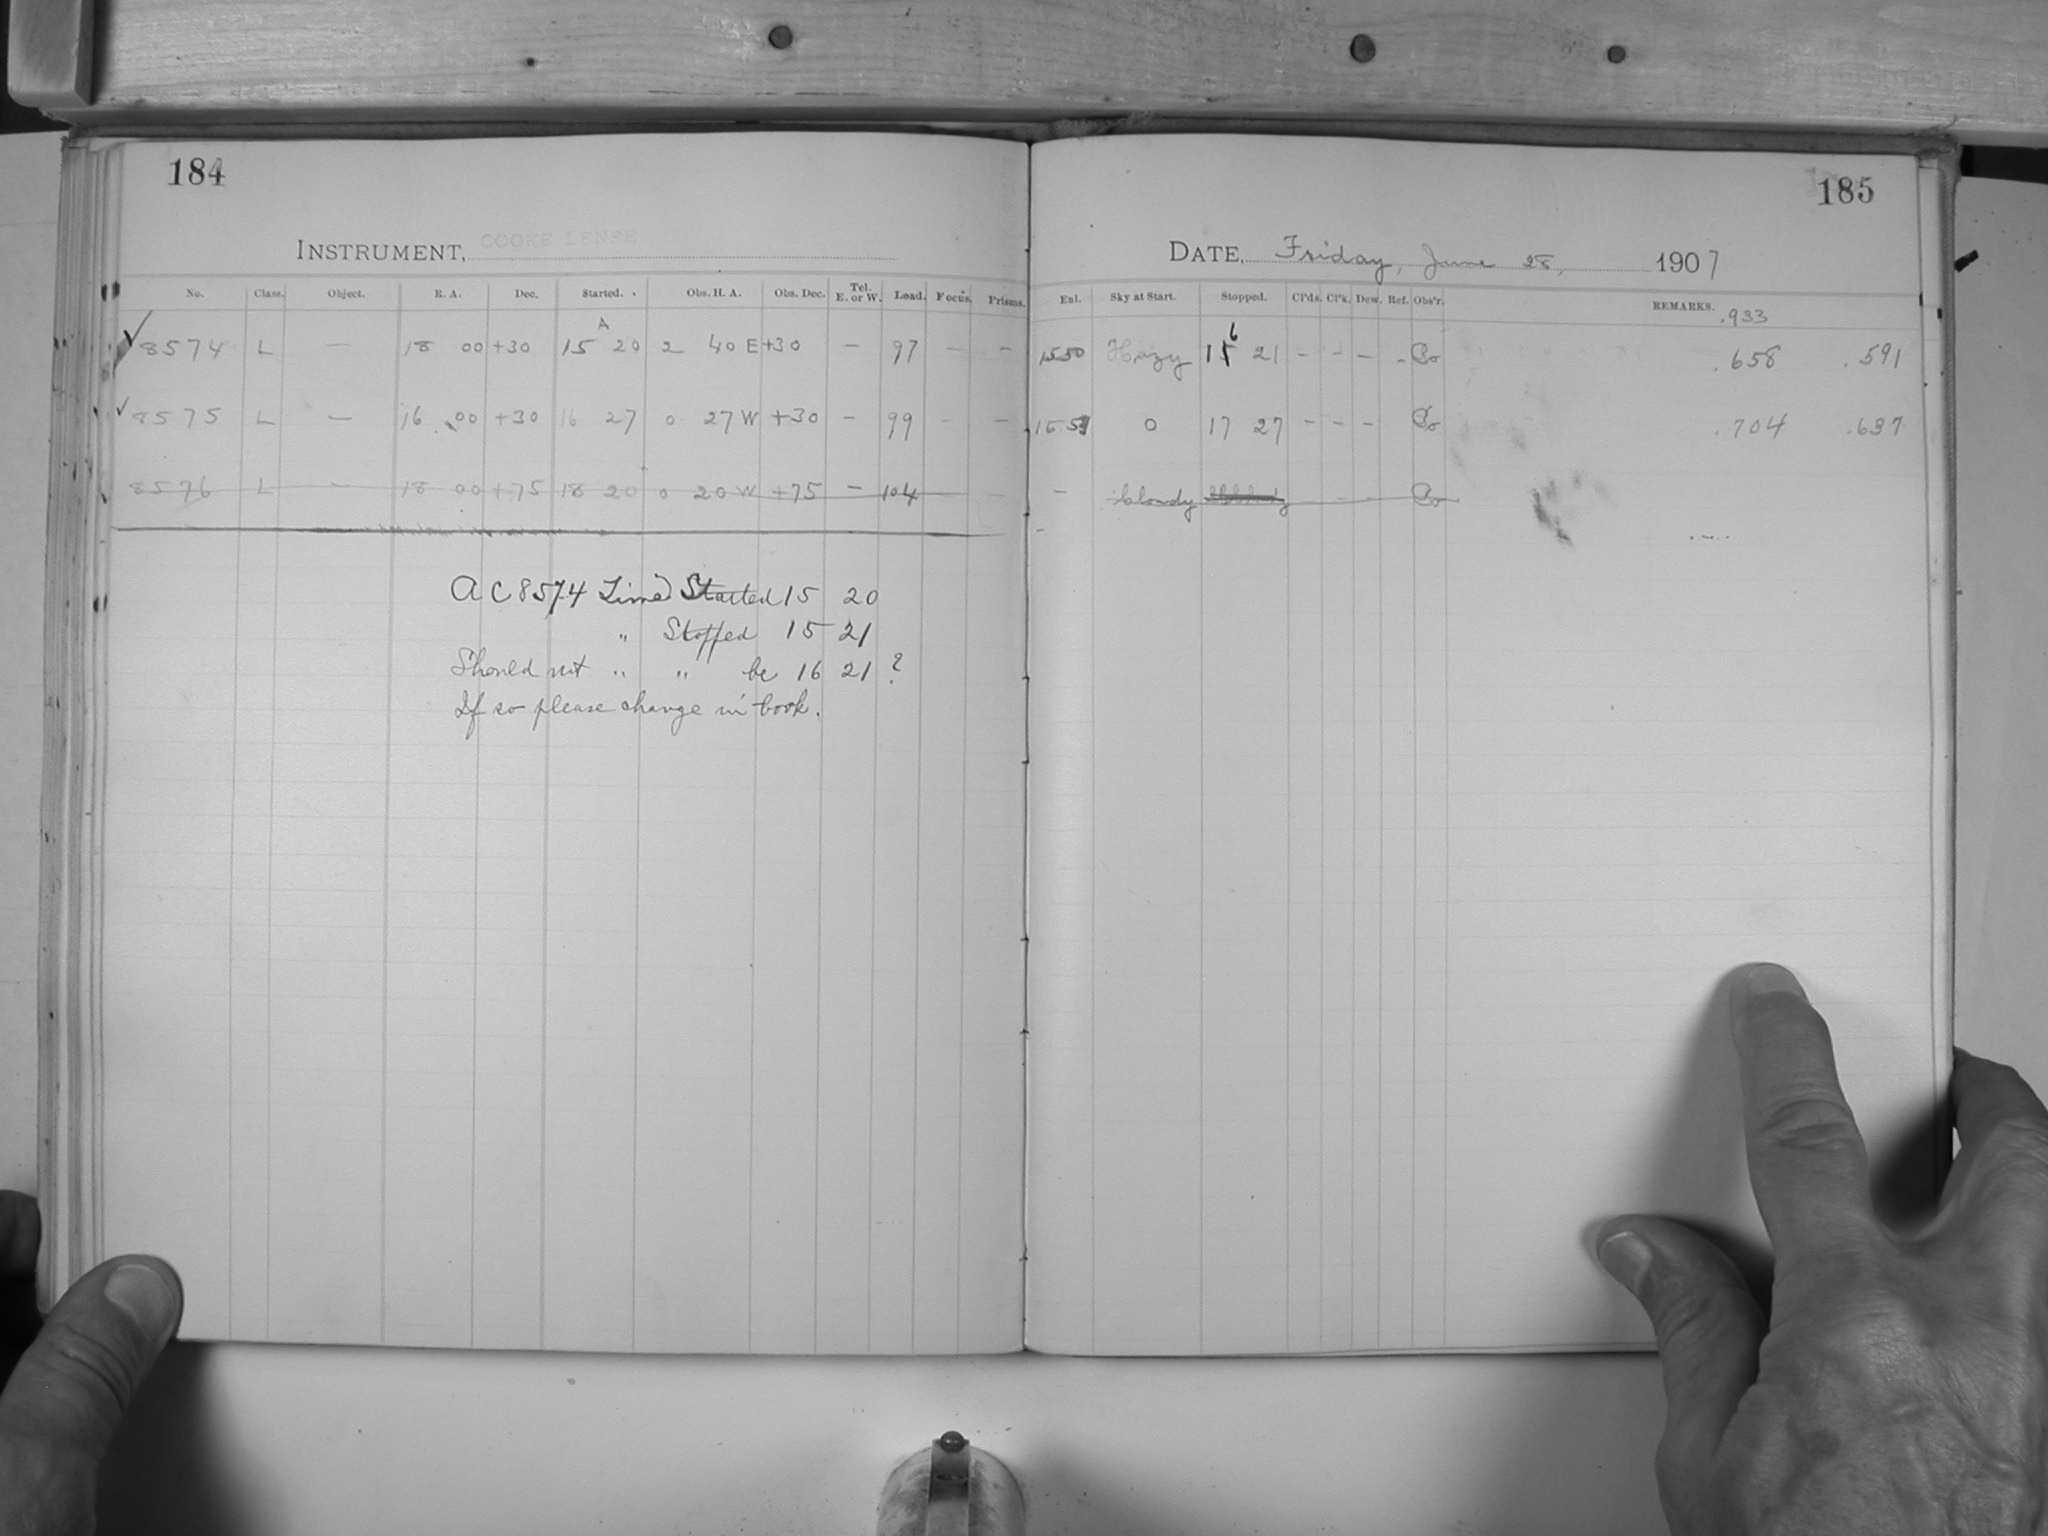 184
185
INSTRUMENT, COOKE LENSE
DATE, Friday, June 28, 1907
No. Class. Object. R. A. Dec. Started. Obs. H. A. Obs. Dec. Tel. E. or W. Load. Focus. Prisms. Enl. Sky at Start. Stopped. Cl'ds. Cl'k. Dew. Ref. Obs'r. REMARKS. .933
✓ 8574 L — 18 00 +30 15 20 A 2 40 E +30 — 97 — — 1550 Hazy 15 6 21 - - - - .658 .591
✓ 8575 L — 16 00 +30 16 27 0 27 W +30 — 99 - — 17 27 - - - .704 .637
8576 L — 18 00 +75 18 20 0 20 W +75 — 104 — — — Cloudy
A C 8574 Time Started 15 20
" Stopped 15 21
Should not " " be 16 21 ?
If so please change in book.